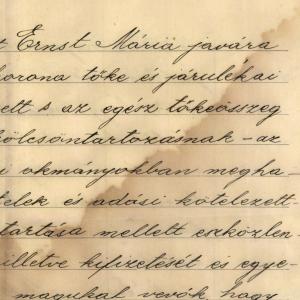 t Ernst Máriä javára
korona tőke és járulékai
ett s az egész tőkeösszeg
kölcsöntartozásnak - az
i okmányokban megha-
telek és adási kötelezett-
tartása mellett eszközlen-
illetve kifizetését és egye-
magukat vevők hogy